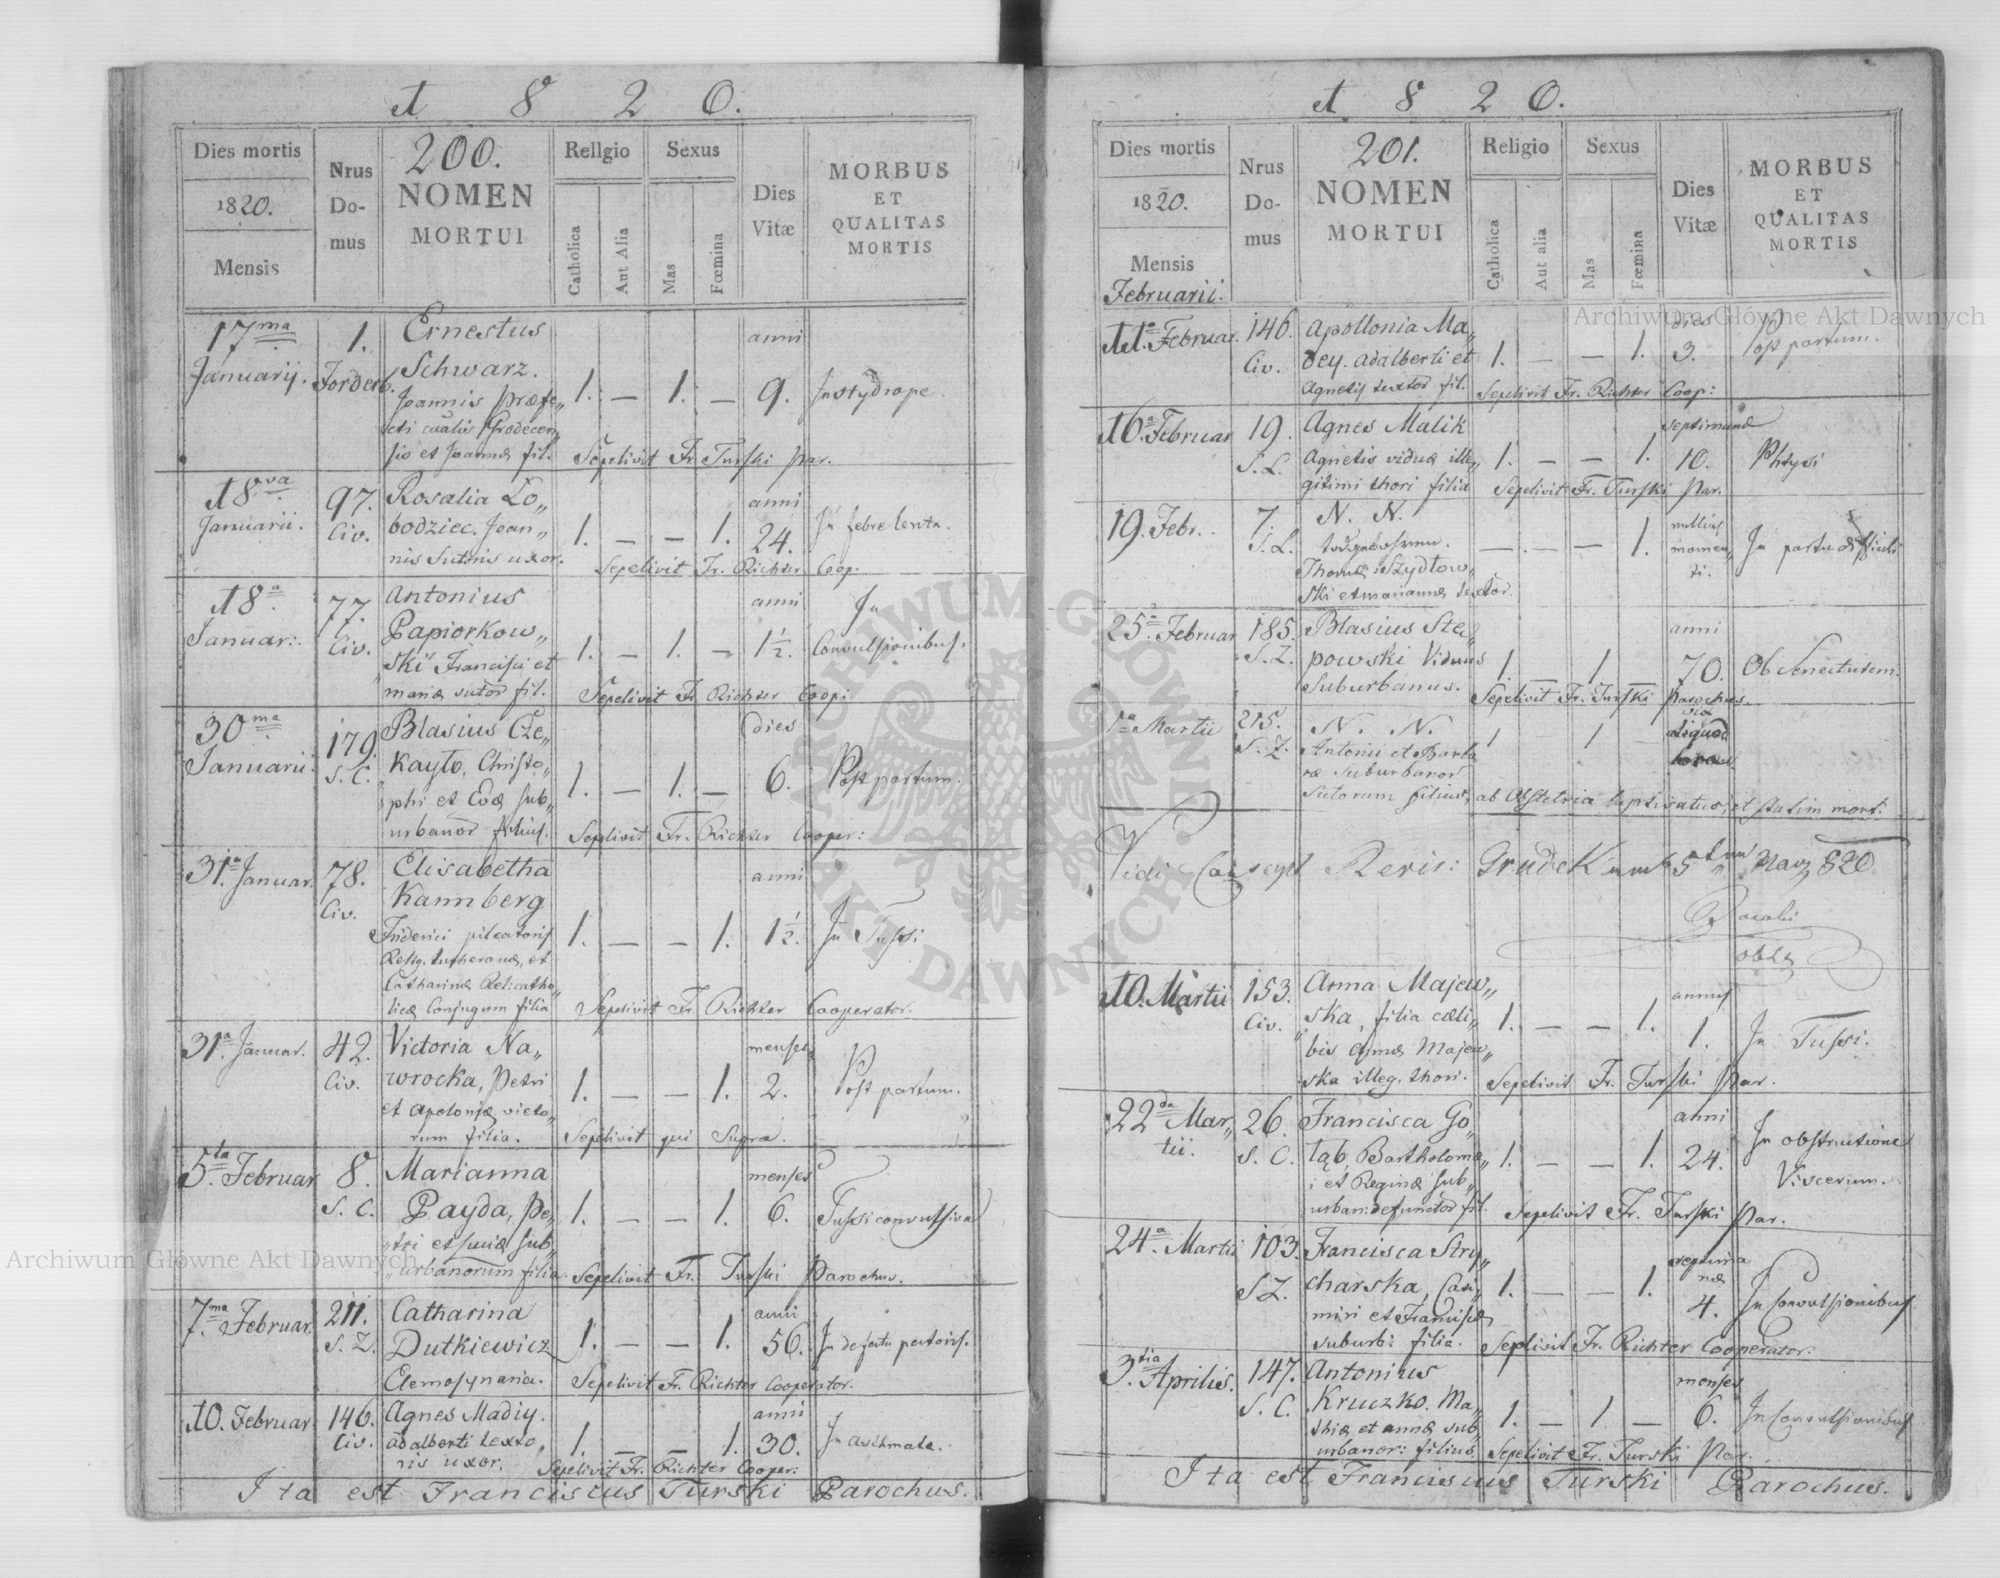 A 8 2 0.
Dies mortis
1820.
Mensis
Nrus
Do-
mus
200.
NOMEN
MORTUI
Religio
Catholica
Aut Alia
Sexus
Mas
Fœmina
Dies
Vitæ
MORBUS
ET
QUALITAS
MORTIS
17ma 1. Ernestus anni
Januarij. Schwarz. 1. — 1. — 9.
Joannis Præfe„
sio et Joannæ fil. Sepelivit Fr. Turski Par.
18va 97. Rosalia Lo„ anni
Januarii. Civ. bodziec. Joan„ 1. — — 1. 24. In febre lenta.
nis Sutoris uxor. Sepelivit Fr. Richter Coop.
18a 77. Antonius anni In
Januar: Civ. Papiorkow„ 1. — 1. — 1½. Convulsionibus.
ski Francisci et
mariæ sutor fil. Sepelivit Fr. Richter Coop:
30ma 179. Blasius Cze„ dies
Januarii S. C. kayło, Christo„ 1. — 1. — 6. Post partum.
phi et Evæ sub„
urbanor filius. Sepelivit Fr. Richter Cooper:
31a Januar. 78. Elisabetha anni
Civ. Kannberg 1. — — 1. 1½. In Tussi
Friderici pileatoris
Relig. Lutheranæ, et
Catharinæ Rel: catho„
licæ Conjugum filia Sepelivit Fr. Richter Cooperator.
31a Januar. 42. Victoria Na„ menses
Civ. wrocka, Petri 1. — — 1. 2. Post partum.
et Apoloniæ vieto„
rum filia. Sepelivit qui Supra.
5ta Februar 8. Marianna menses
S. C. Payda, Pe„ 1. — — 1. 6. Tussi convulsiva
tri et sub„
urbanorum filia. Sepelivit Fr. Turski Parochus.
7ma Februar. 211. Catharina anni
S. Z. Dutkiewicz 1. — — 1. 56. In defectu pectoris.
Elemosynaria. Sepelivit Fr. Richter Cooperator.
10. Februar 146. Agnes Madiy. anni
Civ. adalberti texto„ 1. — — 1. 30. In asthmate.
ris uxor. Sepelivit Fr. Richter Cooper:
Ita est Franciscus Turski Parochus.
A 8 2 0.
Dies mortis
1820.
Mensis
Februarii.
Nrus
Do-
mus
201.
NOMEN
MORTUI
Religio
Catholica
Aut alia
Sexus
Mas
Fœmina
Dies
Vitæ
MORBUS
ET
QUALITAS
MORTIS
11a Februar. 146. Apollonia Ma„ dies
Civ. dey. adalberti et 1. — — 1. 3. Post partum.
Agnetis textor fil. Sepelivit Fr. Richter Coop:
16a Februar 19. Agnes Malik septimanæ
S. L. Agnetis viduæ ille„ 1. — — 1. 10. Phtysi
gitimi thori filia Sepelivit Fr. Turski Par.
19. Febr. 7. N. N. nullius
S. L. — — 1. momen„ In partu difficili
Thomæ Szydłow„ ti.
ski et mariannæ textor.
25a Februar 185. Blasius Ste„ anni
S. Z. powski Viduus 1. 1. 70. Ob Senectutem.
Suburbanus. Sepelivit Fr. Turski Parochus.
1a Martii 215. N. N.
S. Z. Antonii et Barba 1 1 — aliquod
ræ Suburbanor
Sutorum filius, ab Obstetrice baptisatus, et statim mort:
Vidi Revis: Grudek 5 Marz 820
10. Martii 153. Anna Majew„ annus
Civ. ska, filia cæli„ 1. — — 1. 1. In Tussi.
bis Majew„
ska illeg. thori. Sepelivit Fr. Turski Par.
22da Mar„ 26. Francisca Go„ anni
tii. S. C. łąb Bartholomæ„ 1. — — 1. 24. In obstructione
i et Reginæ sub„ Viscerum.
urban: defunctor fil. Sepelivit Fr. Turski Par.
24a Martii 103. Francisca Stry„ septima
S Z. charska, Casi„ 1. — — 1. næ
miri et Franciscæ 4. In Convulsionibus
suburb: filia. Sepelivit Fr. Richter Cooperator.
3tia Aprilis. 147. Antonius menses
S. C. Kruczko. Ma„ 1. — 1. — 6. In Convulsionibus
thiæ et annæ sub
urbanor: filius Sepelivit Fr. Turski Par.
Ita est Franciscus Turski Parochus.
Archiwum Główne Akt Dawnych
Archiwum Główne Akt Dawnych
ARCHIWUM GŁÓWNE AKT DAWNYCH